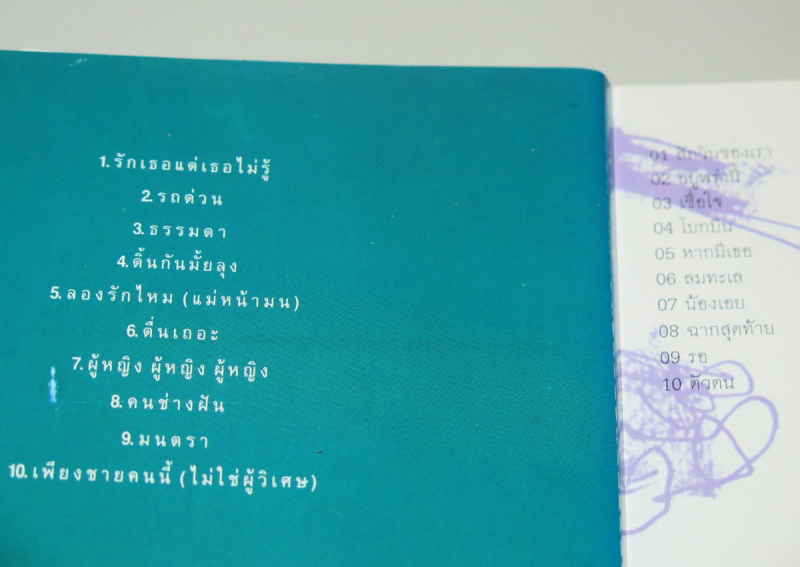 1.รักเธอแต่เธอไม่รู้
2.รถด่วน
3.ธรรมดา
4.ดิ้นกันมั้ยลุง
5.ลองรักไหม (แม่หน้ามน)
6.ตื่นเถอะ
7.ผู้หญิง ผู้หญิง ผู้หญิง
8.คนช่างฝัน
9.มนตรา
10.เพียงชายคนนี้ (ไม่ใช่ผู้วิเศษ)
01 สักวันของเรา
02 อยู่พรุ่งนี้
03 เชื่อใจ
04 โบกบิน
05 หากมีเธอ
06 ลมทะเล
07 น้องเอย
08 ฉากสุดท้าย
09 รอ
10 ตัวตน